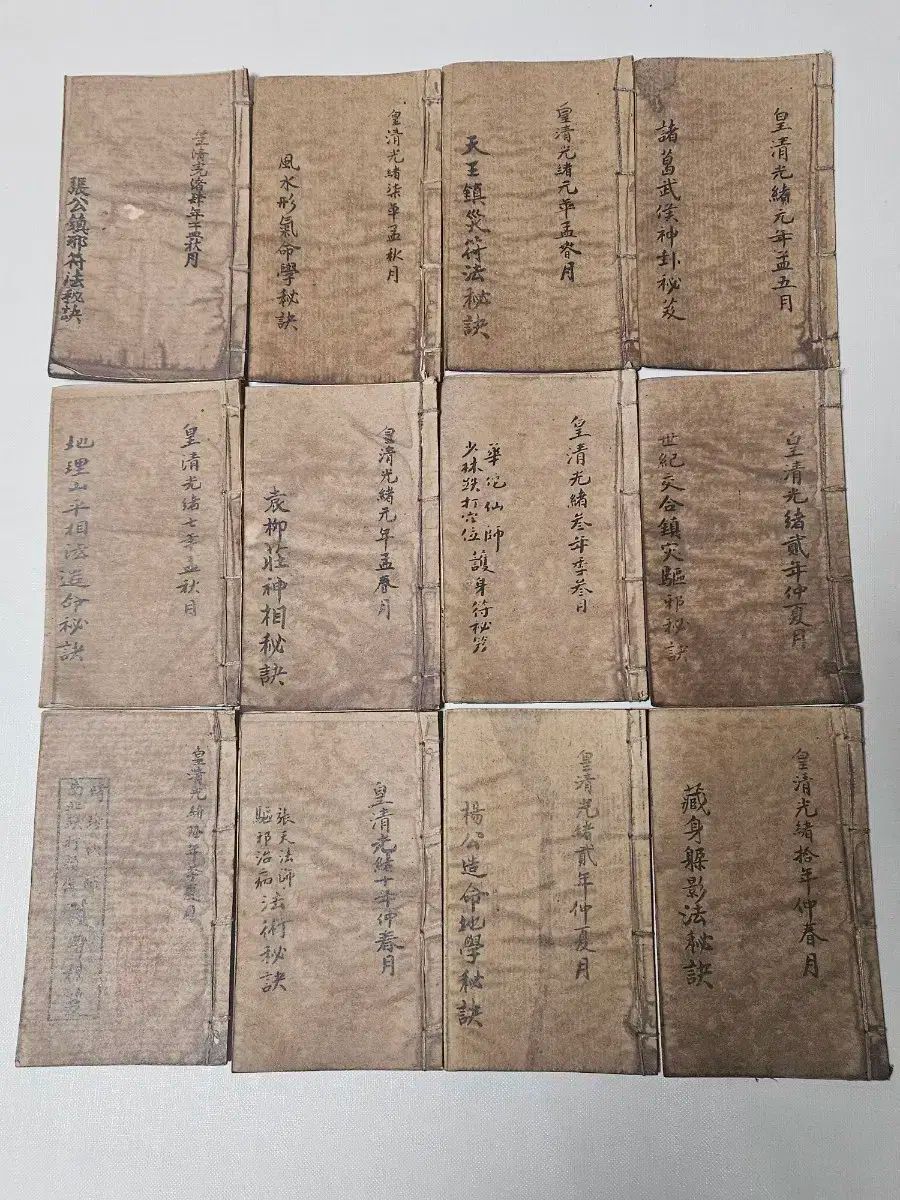 皇清光緒元年孟五月
諸葛武侯神卦秘笈
皇清光緒元年孟春月
天王鎮災符法秘訣
皇清光緒柒年孟秋月
風水形氣命學秘訣
皇清光緒肆年
秋月
張公鎮邪符法秘訣
皇清光緒貳年仲夏月
世紀交合鎮灾驅邪秘訣
皇清光緒叁年季叁月
華佗仙師
少林跌打穴位
護身符秘笈
皇清光緒元年孟春月
袁柳莊神相秘訣
皇清光緒七年孟秋月
地理山平相法造命秘訣
皇清光緒拾年仲春月
藏身躲影法秘訣
皇清光緒貳年仲夏月
楊公造命地學秘訣
皇清光緒十年仲春月
張天法師
驅邪治病
法術秘訣
皇清光緒